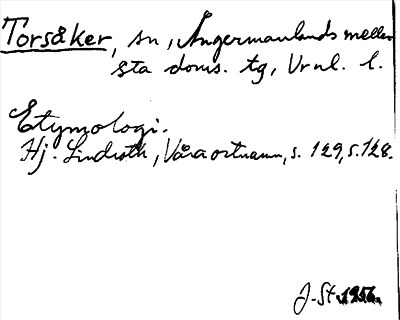 Torsåker, sn, Ångermanlands mellersta doms. tg, Vrnl. l.
Etymologi.
Hj. Lindroth, Våra ortnamn, s. 129, s. 128.
J. St. 1956.